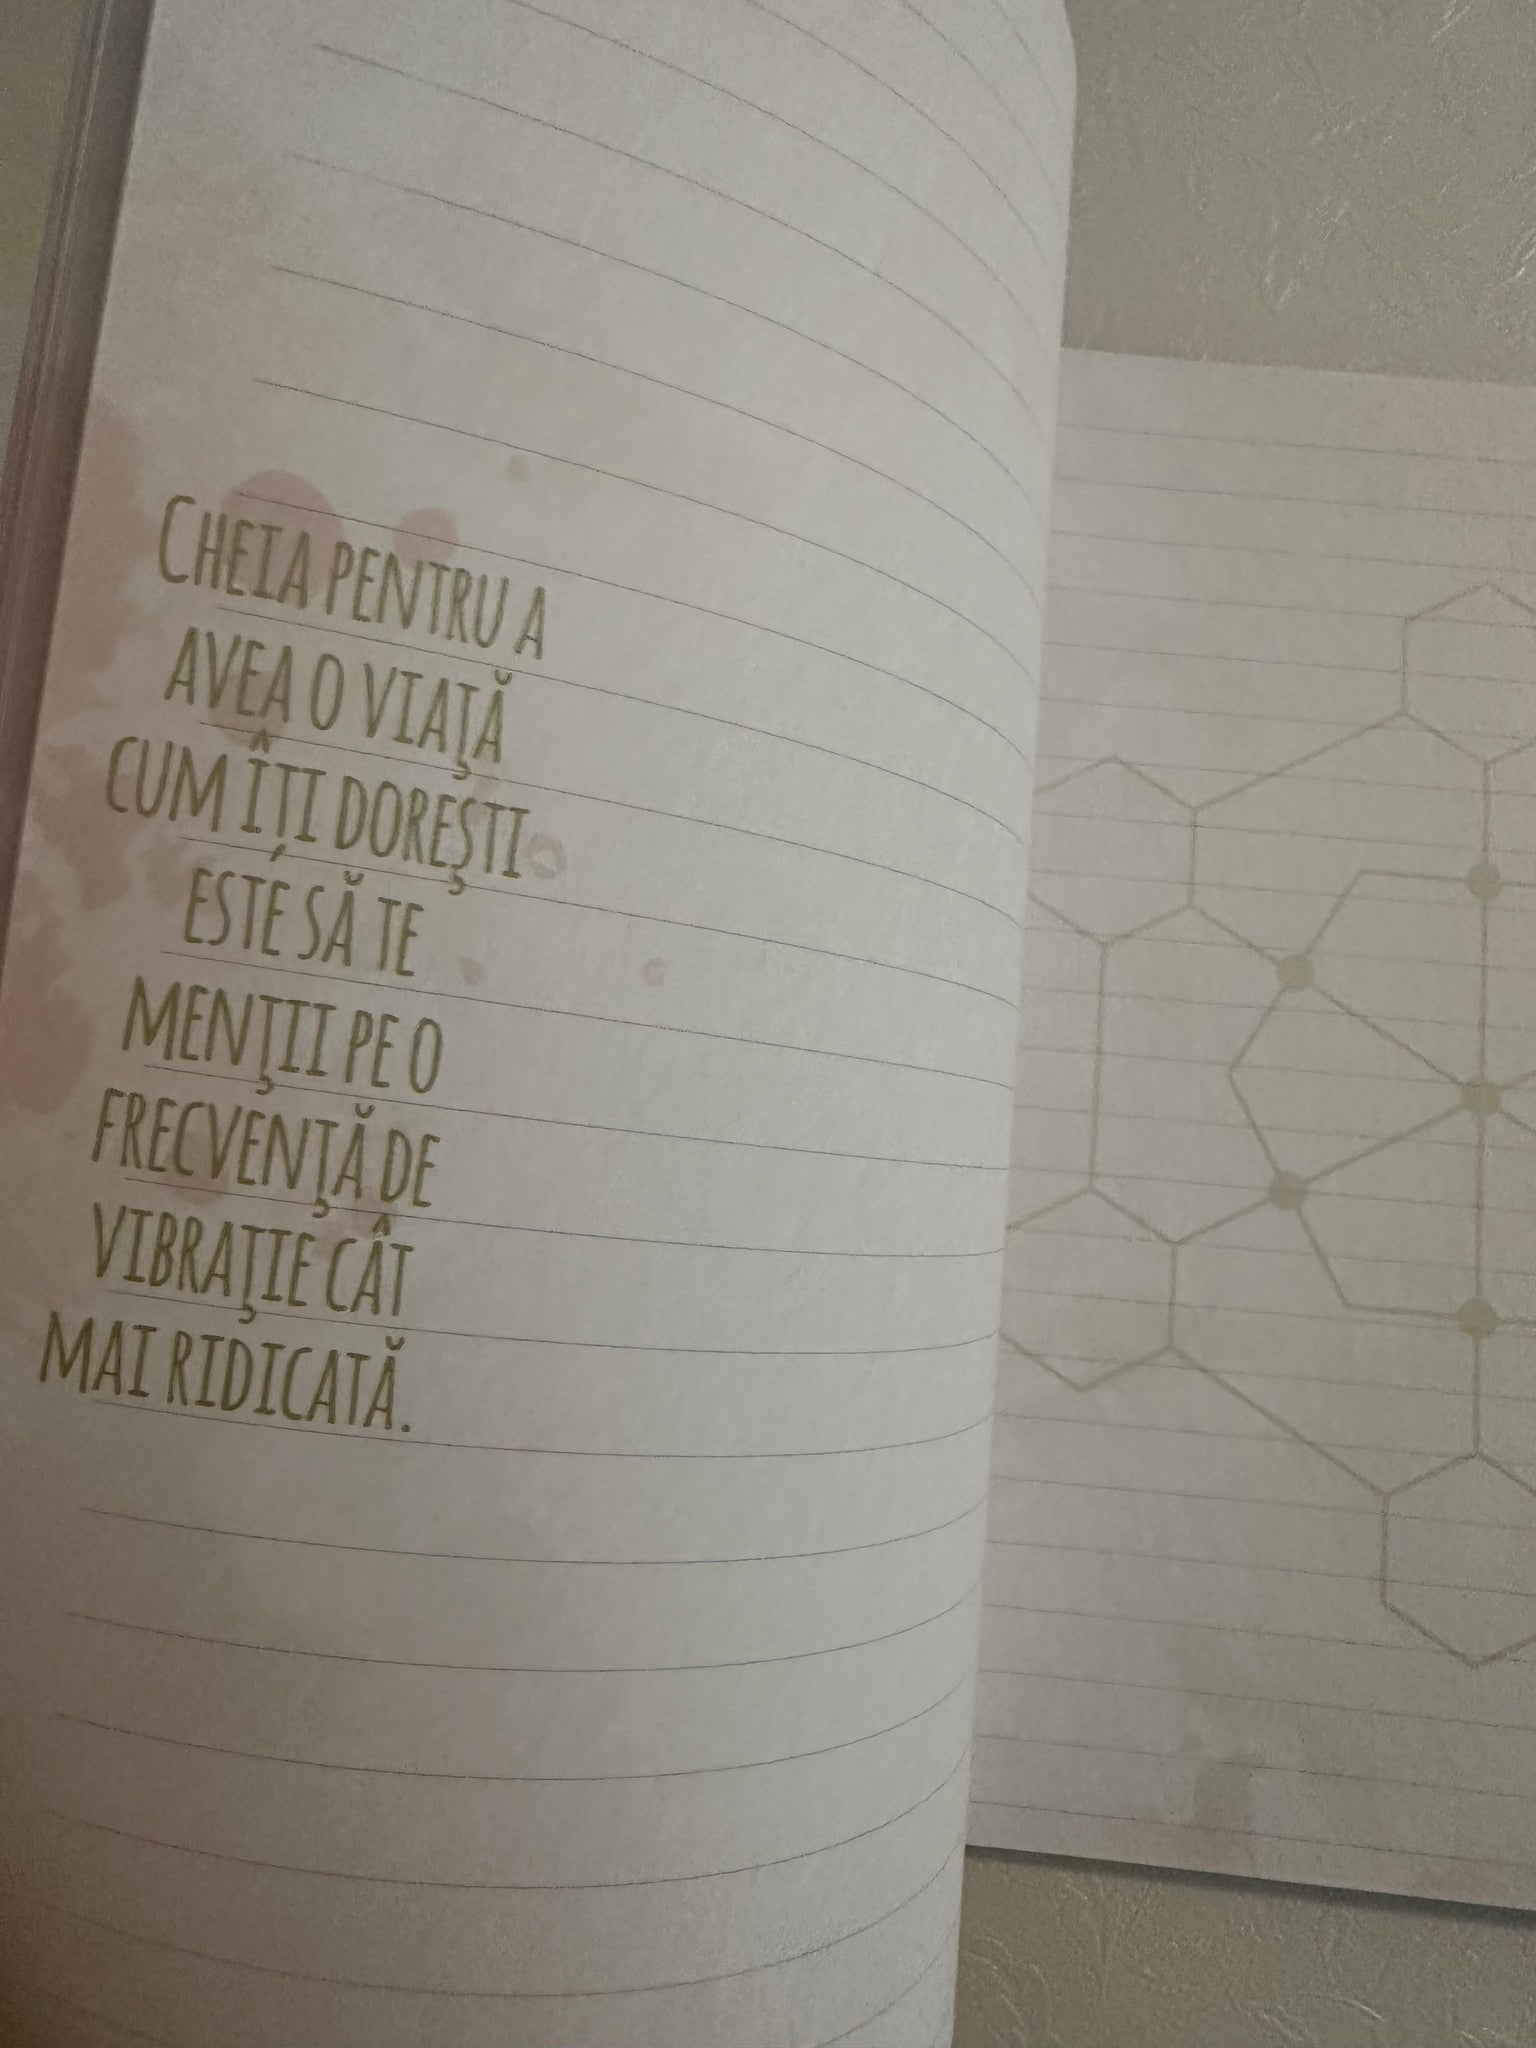 CHEIA PENTRU A
AVEA O VIAŢĂ
CUM ÎŢI DOREŞTI
ESTE SĂ TE
MENŢII PE O
FRECVENŢĂ DE
VIBRAŢIE CÂT
MAI RIDICATĂ.